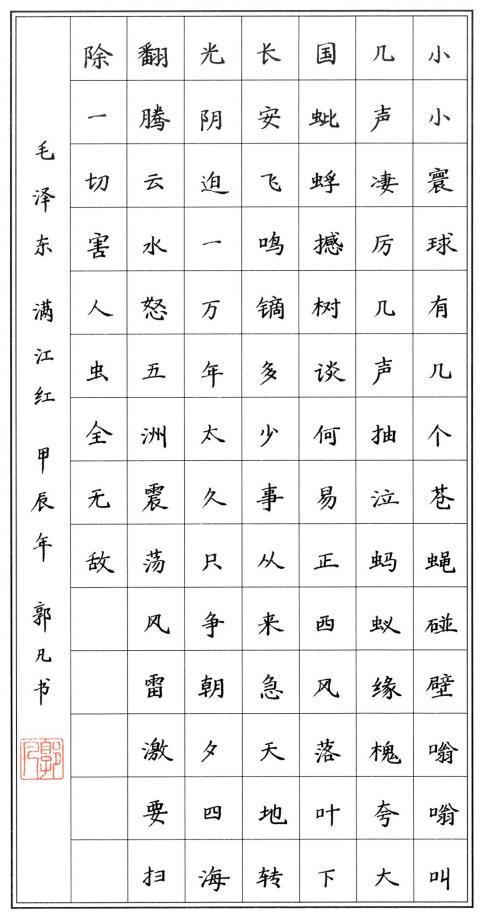 小小寰球有几个苍蝇碰壁嗡嗡叫
几声凄厉几声抽泣蚂蚁缘槐夸大
国蚍蜉撼树谈何易正西风落叶下
长安飞鸣镝多少事从来急天地转
光阴迫一万年太久只争朝夕四海
翻腾云水怒五洲震荡风雷激要扫
除一切害人虫全无敌
毛泽东 满江红 甲辰年 郭凡书
郭凡